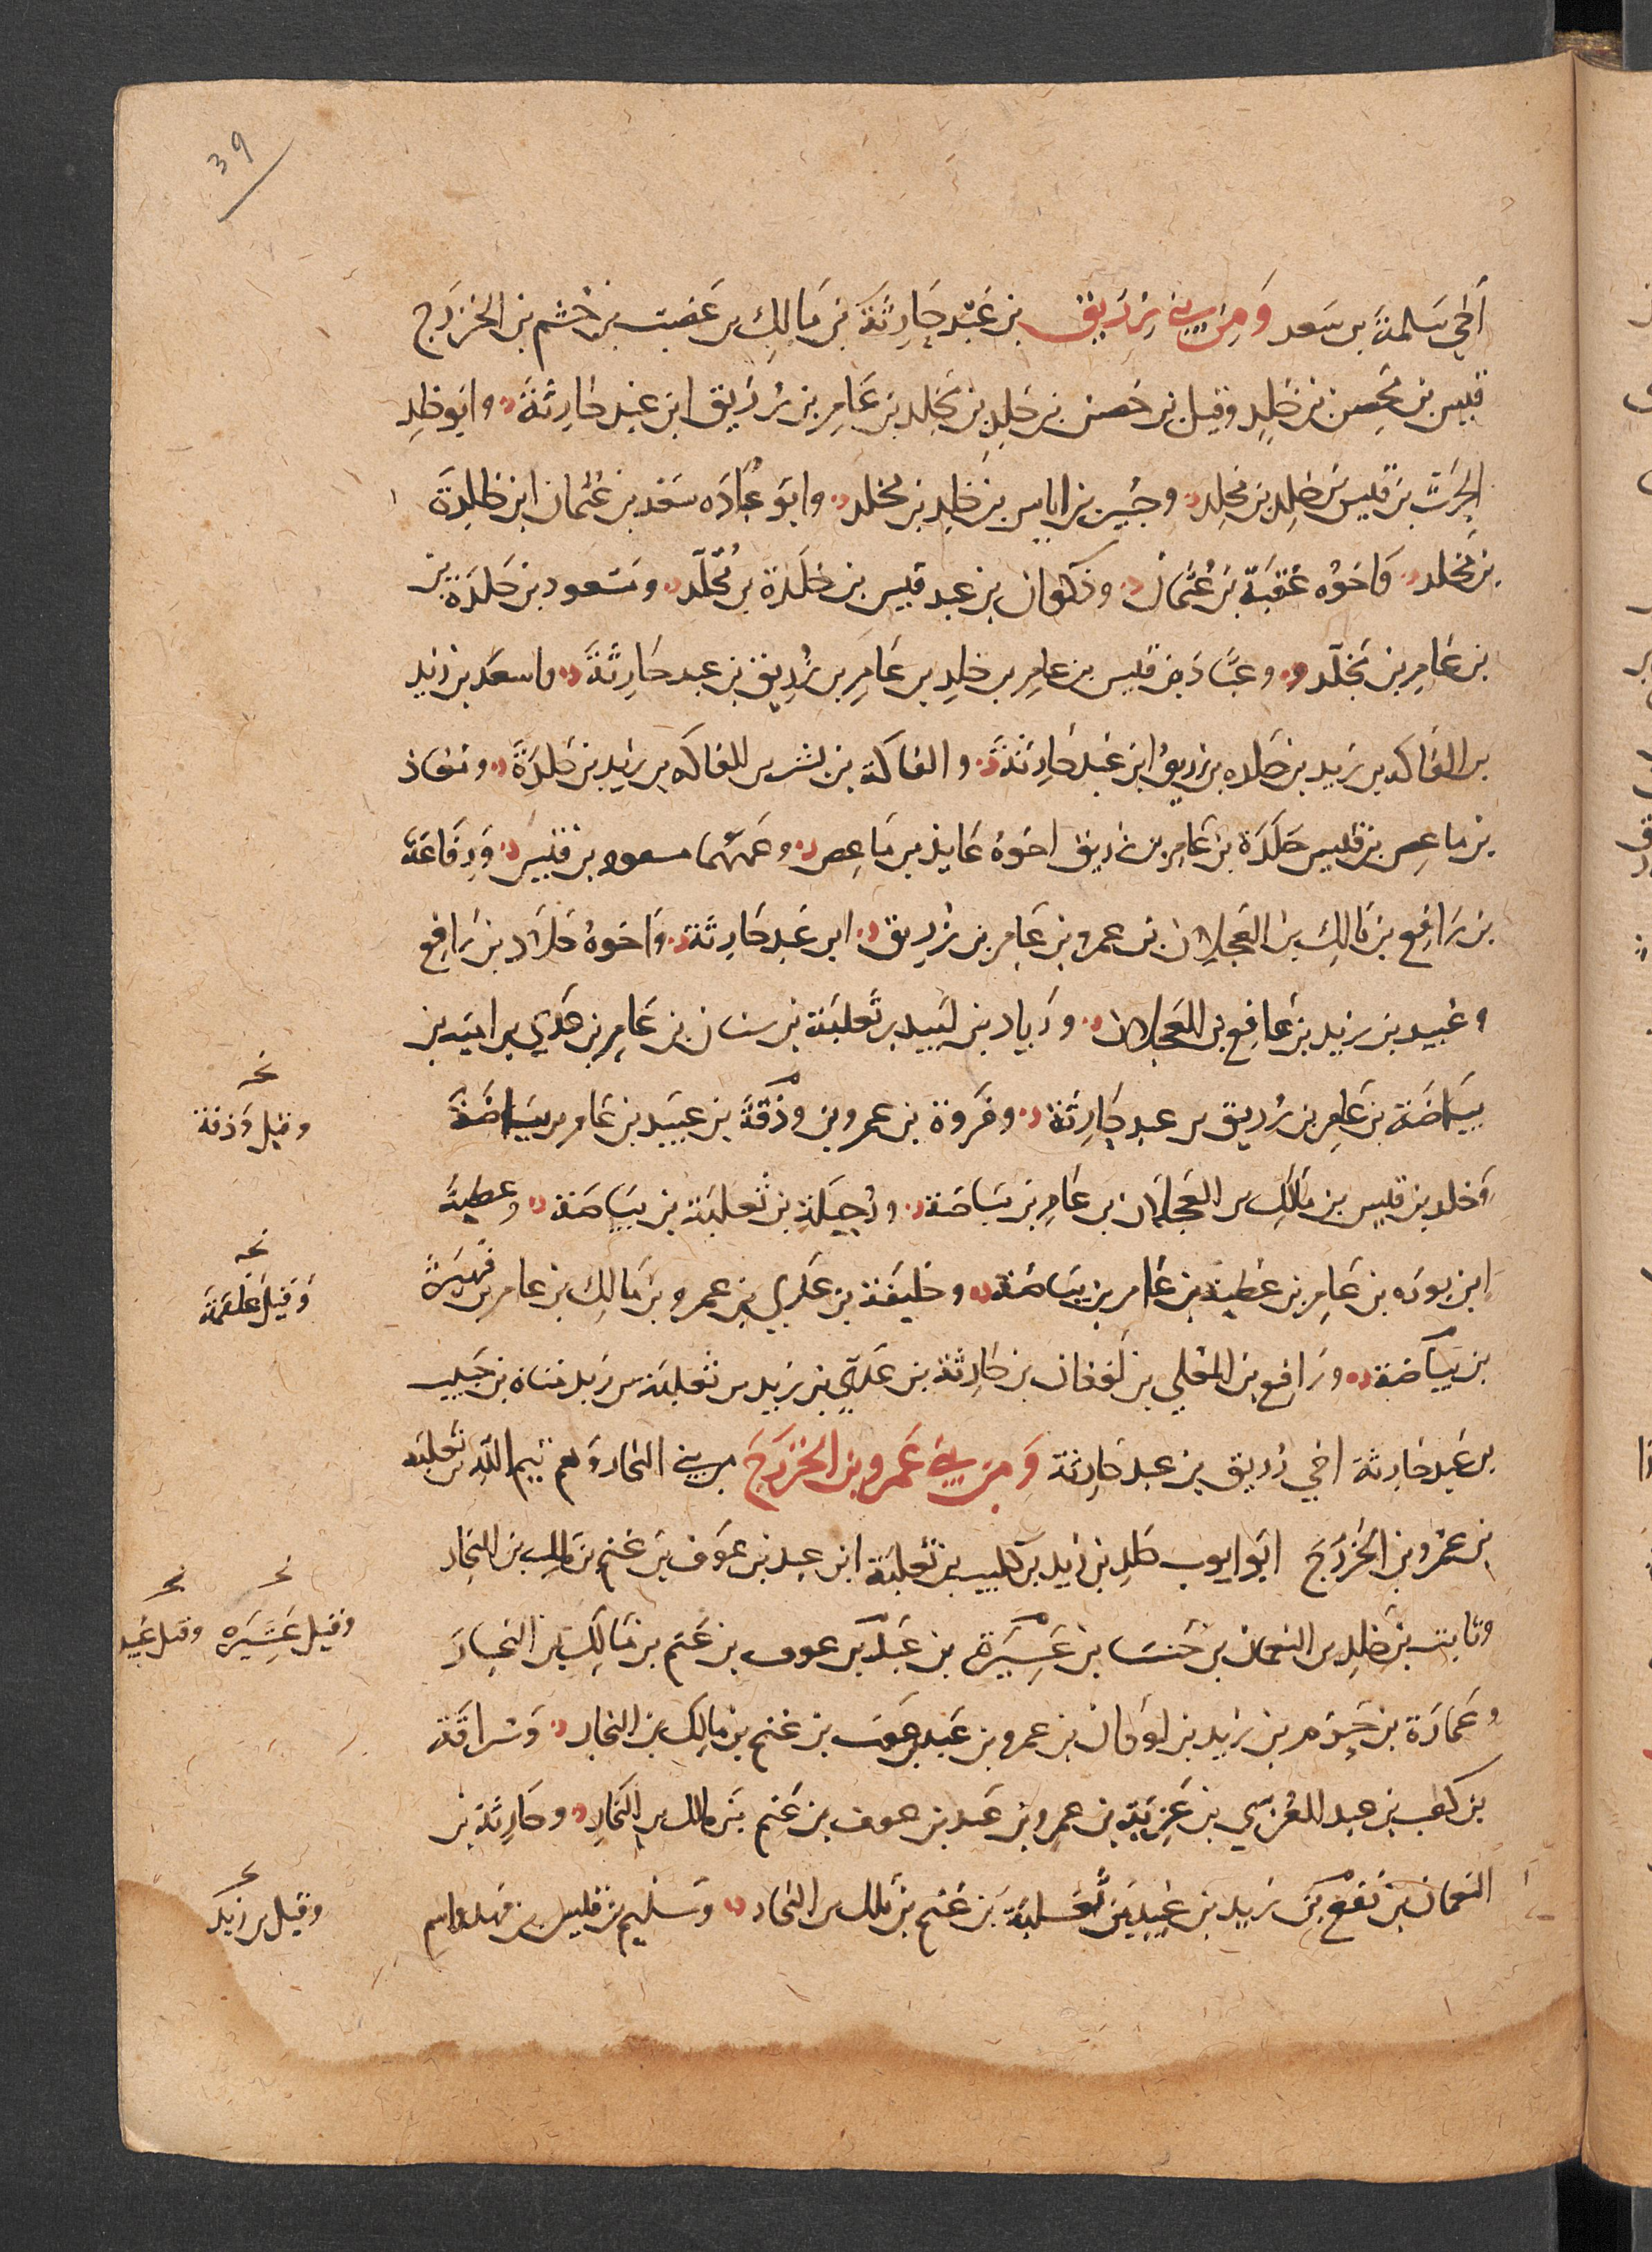 39
أخي سَلمة بن سَعد وَمِن بني زُرَيق بن عَبْد حَارِثَة بن مَالِك بن غضب بن جُشم بن الخزرَج
قيس بن مُحِصن بن خٰلِد وقيل بن حصن بن خٰلِد بن مُخَلد بن عَامِر بن زُرَيق ابن عبد حَارِثَة وابو خٰلِد
الحٰرث بن قيس بن خٰلِد بن مخلد وجُبَير بن اياس بن خٰلِد بن مخلد وابو عُبَادَه سَعْد بن عُثمان ابن خلدة
بن مُخلد وَاخوُه عُقبَة بن عُثمَان وذكوان بن عبد قيس بن خلَدة بن مُخَلّد ومَسْعود بن خلدَة بن
بن عَامِر بن مُخلّد وعبَّاد بن قيس بن عامِر بن خٰلِد بن عَامِر بن زُرَيق بن عبد حَارِثَة واسعَد بن زيد
بن الفَاكه بن زيد بن خلده بن زريق ابن عَبْد حَارِثَة والفاكة بن بشر بن الفاكه بن زيد بن خلدَة ومُعَاذ
بن ماعِص بن قيس خَلَدَة بن عَامِر بن زريق اخوهُ عَايذ بن مَاعِص وعَمهُما مسعود بن قيس وَرِفَاعَة
بن رَافِع بن مَالِك بن العَجلان بن عمرو بن عَامِر بن زُرِيق ابن عَبد حَارِثَة وَاخوهُ خَلّاد بن رَافِع
وعُبيد بن زيد بن عَامِع بن العَجلان وزيَاد بن لَبيد بن ثَعلبَة بن سنان بن عَامِر بن عَدي بن اميَة بن
بيَاضَة بن عَامِر بن زُريق بن عبد حَارِثَة وفَروة بن عمرو بن وَذْقَة بن عبَيد بن عَامر بن بيَاضَة
وَخٰلد بن قيس بن مَالِك بن العَجلَان بن عَامِر بن بيَاضَة ورُجَيلَة بن ثَعلبَة بن بيَاضَة وعطيةُ
ابن نويره بن عَامِر بن عَطية بن عَامر بن بيَاضَة وخليفة بن عَدي بن عمرو بن مَالِك بن عَامر بن فُهَيرَة
بن بيَاضَة ورَافِع بن المعَلي بن لَوذان بن حَارِثَة بن عَدَي بن زيد بن ثعلبَة بن زيد مَناه بن حَبيب
بن عَبد حَارِثَة اخي زُرَيق بن عبد حَارِثَة وَمِن بني عَمرو بن الخزرَج من بني النجار وَهم تيم الله بن ثعلبَه
بن عَمرو بن الخزرَج ابَو ايوب خٰلِد بن زَيد بن كليب بن ثعلبَة ابن عبد بن عَوف بن غنم بن مَالك بن النجار
وثَابت بن خٰلِد بن النعمان بن خنسَا بن عَسِيرَة بن عَبد بن عوف بن غَنم بن مَالِك بن النجار
وعمَارَة بن حَزم بن زيد بن لوذان بن عمرو بن عَبد عوف بن غنم بن مَالِك بن النجار وَسُراقَة
بن كعب بن عبد العُزّي بن غَزِيَّة بن عمرو بن عَبد بن عَوف بن غنم بن مالك بن النجار وحَارِثة بن
النعمان بن نَفع بن زيد بن عُبيد بن ثَعَلبَة بن غنم بن مالك بن النجار وَسُليم بن قيس بن قهد واسم
وقيل وَدقة
وَقيل عَلقمَة
وقيل عُشَيره
وقيل عُبيد
وقيل بن زيد